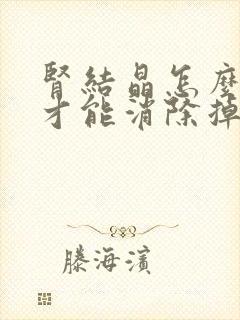 腎結晶怎麼
才能消除掉
滕海濱